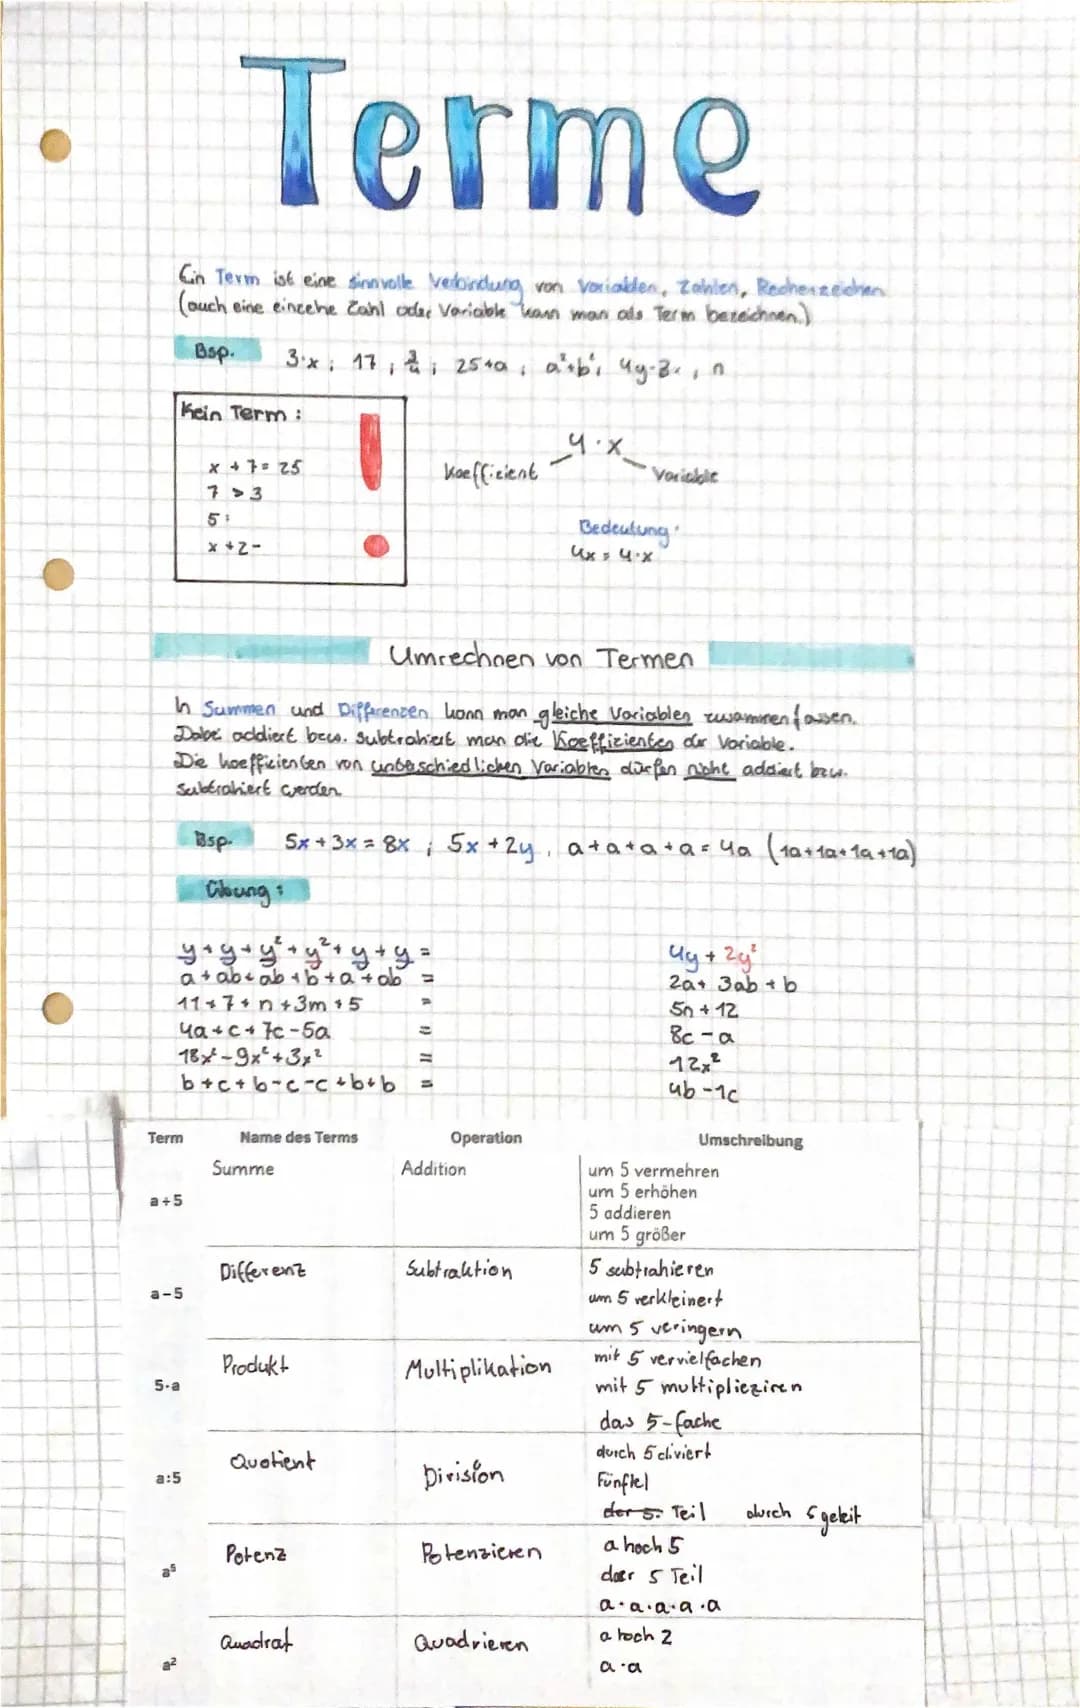 Terme
Ein Term ist eine sinnvolle Verbindung von Variablen, Zahlen, Rechenzeichen
(auch eine einzelne Zahl oder Variable kann man als Term bezeichnen.)
Bsp. 3·x ; 17 ; 3/4 ; 25+a ; a²+b² ; 4y-3x ; n
Kein Term :
x + 7 = 25
7 > 3
5 :
x + 2 -
4 · x
Koeffizient Variable
Bedeutung:
4x = 4·x
Umrechnen von Termen
In Summen und Differenzen kann man gleiche Variablen zusammenfassen.
Dabei addiert bzw. subtrahiert man die Koeffizienten der Variable.
Die Koeffizienten von unterschiedlichen Variablen dürfen nicht addiert bzw.
subtrahiert werden
Bsp. 5x + 3x = 8x ; 5x + 2y , a+a+a+a = 4a (1a+1a+1a+1a)
Übung :
y + y + y² + y² + y + y = 4y + 2y²
a + ab + ab + b + a + ab = 2a + 3ab + b
11 + 7 + n + 3m + 5 = 5n + 12
4a + c + 7c - 5a = 8c - a
18x² - 9x² + 3x² = 12x²
b + c + b - c - c + b + b = 4b - 1c
Term Name des Terms Operation Umschreibung
Summe Addition um 5 vermehren
um 5 erhöhen
a+5 5 addieren
um 5 größer
Differenz Subtraktion 5 subtrahieren
a-5 um 5 verkleinert
um 5 veringern
Produkt Multiplikation mit 5 vervielfachen
5·a mit 5 multiplieziren
das 5-fache
Quotient Division durch 5 diviert
a:5 Fünftel
der 5. Teil durch 5 geteit
Potenz Potenzieren a hoch 5
a⁵ der 5 Teil
a·a·a·a·a
Quadrat Quadrieren a hoch 2
a² a·a